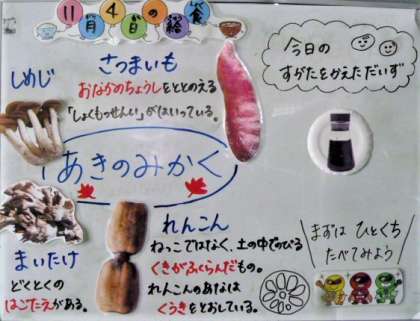 11月4日の給食
さつまいも
おなかのちょうしをととのえる
「しょくもつせんい」がはいっている。
しめじ
今日の
すがたをかえただいず
あきのみかく
まいたけ
どくとくの
はごたえがある。
れんこん
ねっこではなく、土の中でのびる
くきがふくらんだもの。
れんこんのあなは
くうきをとおしている。
まずは ひとくち
たべてみよう